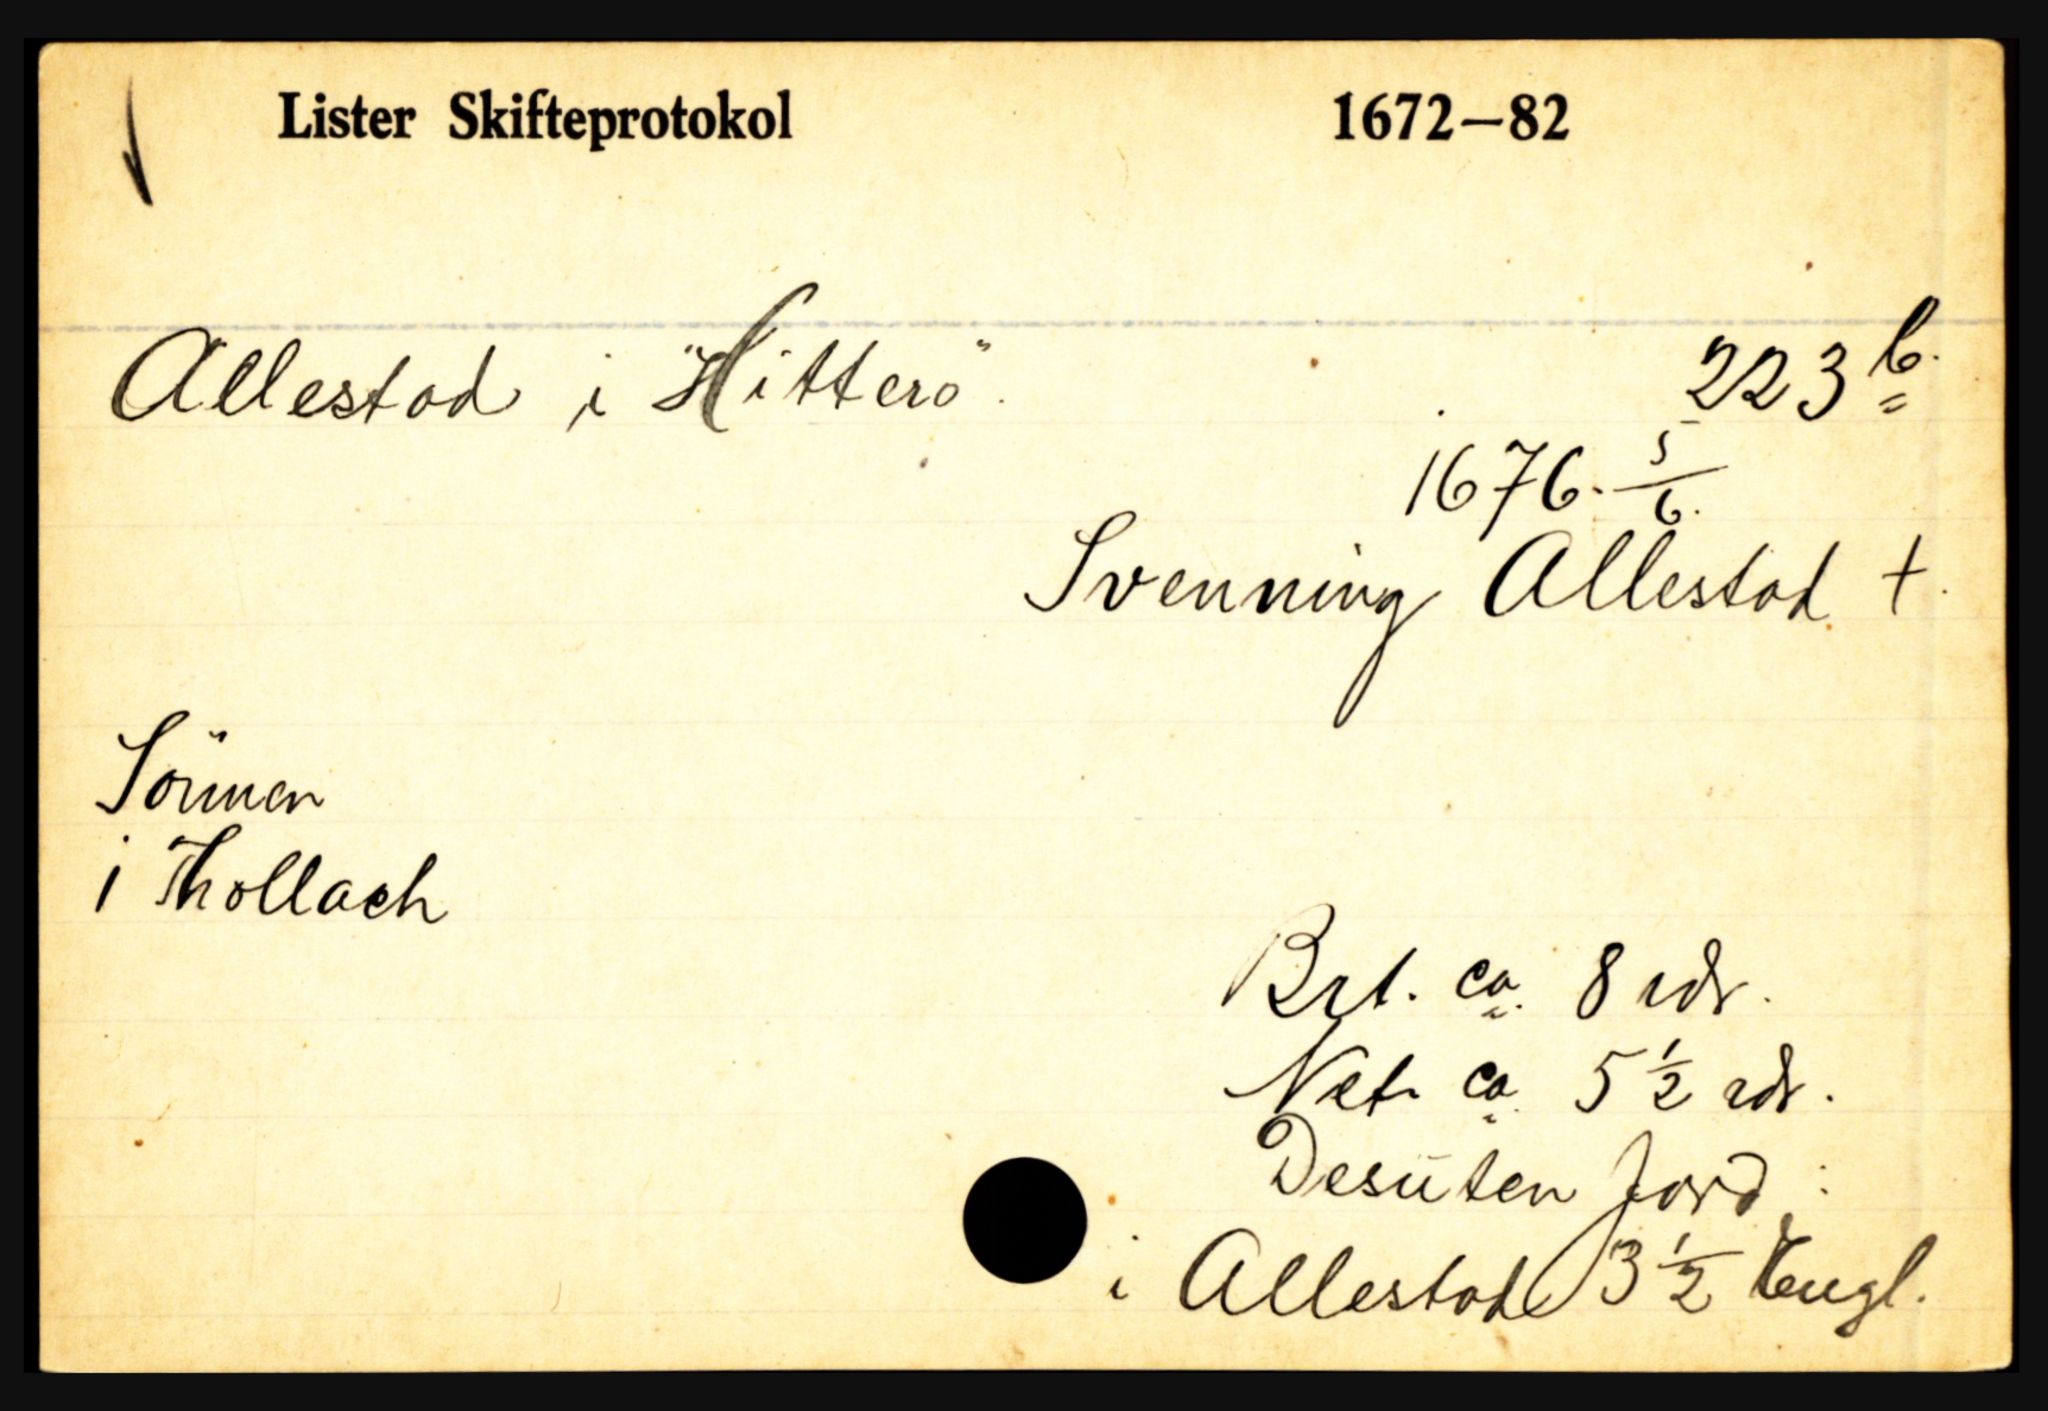 Lister Skifteprotokol 1672—82
Allestad i "Hitterö".
223 b.
1676. 5/6.
Svenning Allestad †.
i Thollach
Brt. ca. 8 rdr.
Net. ca. 5 1/2 rdr.
Desüten Jord:
i Allestad 3 1/2 Engl.